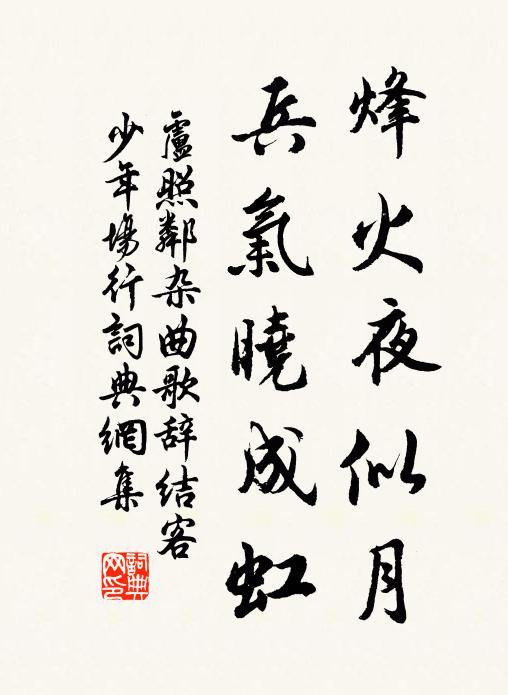 烽火夜似月
兵氣曉成虹
盧照鄰杂曲歌辞結客
少年場行詞典網集
詞典
网印